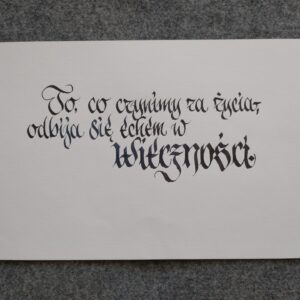 To, co czynimy za życia,
odbija się echem w
wieczności.